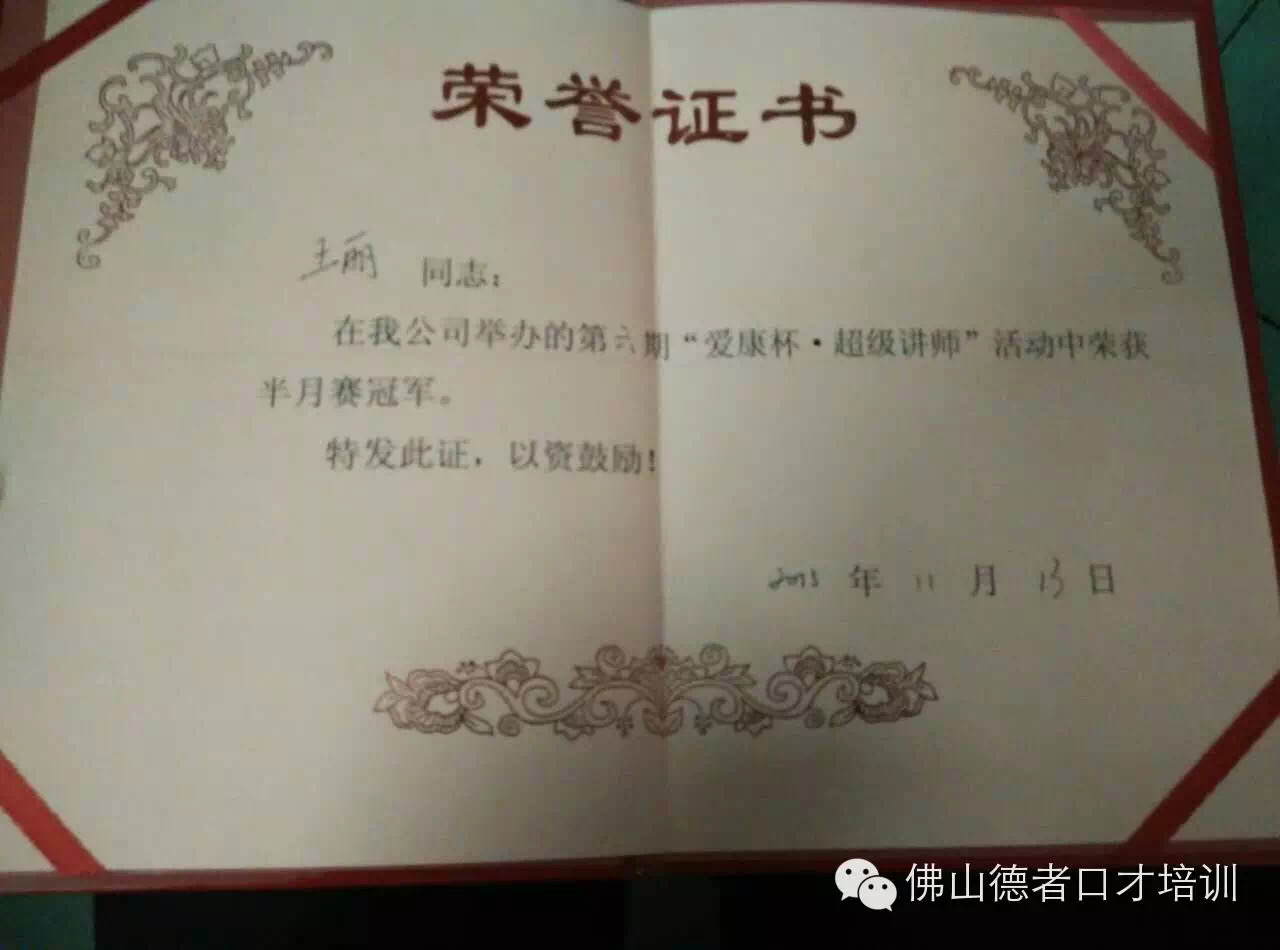 荣誉证书
王丽 同志：
在我公司举办的第六期“爱康杯·超级讲师”活动中荣获
半月赛冠军。
特发此证，以资鼓励！
2013 年 11 月 13 日
佛山德者口才培训